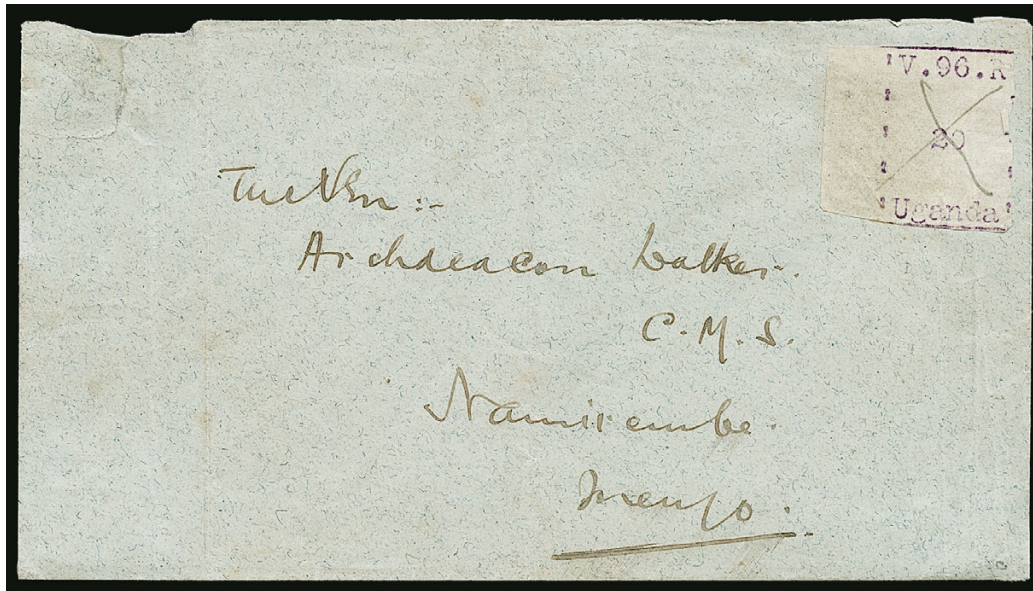 V.96.R
20
Uganda
The Ven :-
Archdeacon Walker.
C. M. S.
Namirembe.
Mengo.